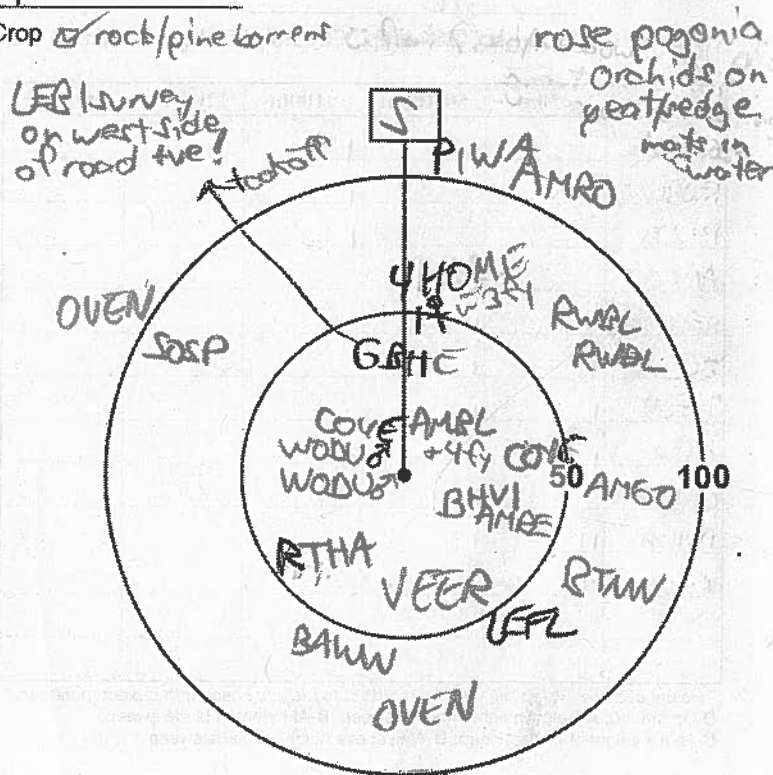 Crop ☑ rock/pine barrens
rose pogonia
orchids on
peat/sedge
mats in
water
LEBI survey
on west side
of road
took off
S
PIWA
AMRO
4 HOME
1♀ 3
OVEN
SOSP
RWBL
RWBL
GBHE
COYE AMBL
WODU♂ +4 COYE
WODU♂
50
AMGO
100
BHVI
RTHA
VEER
LEFL
BAWW
OVEN